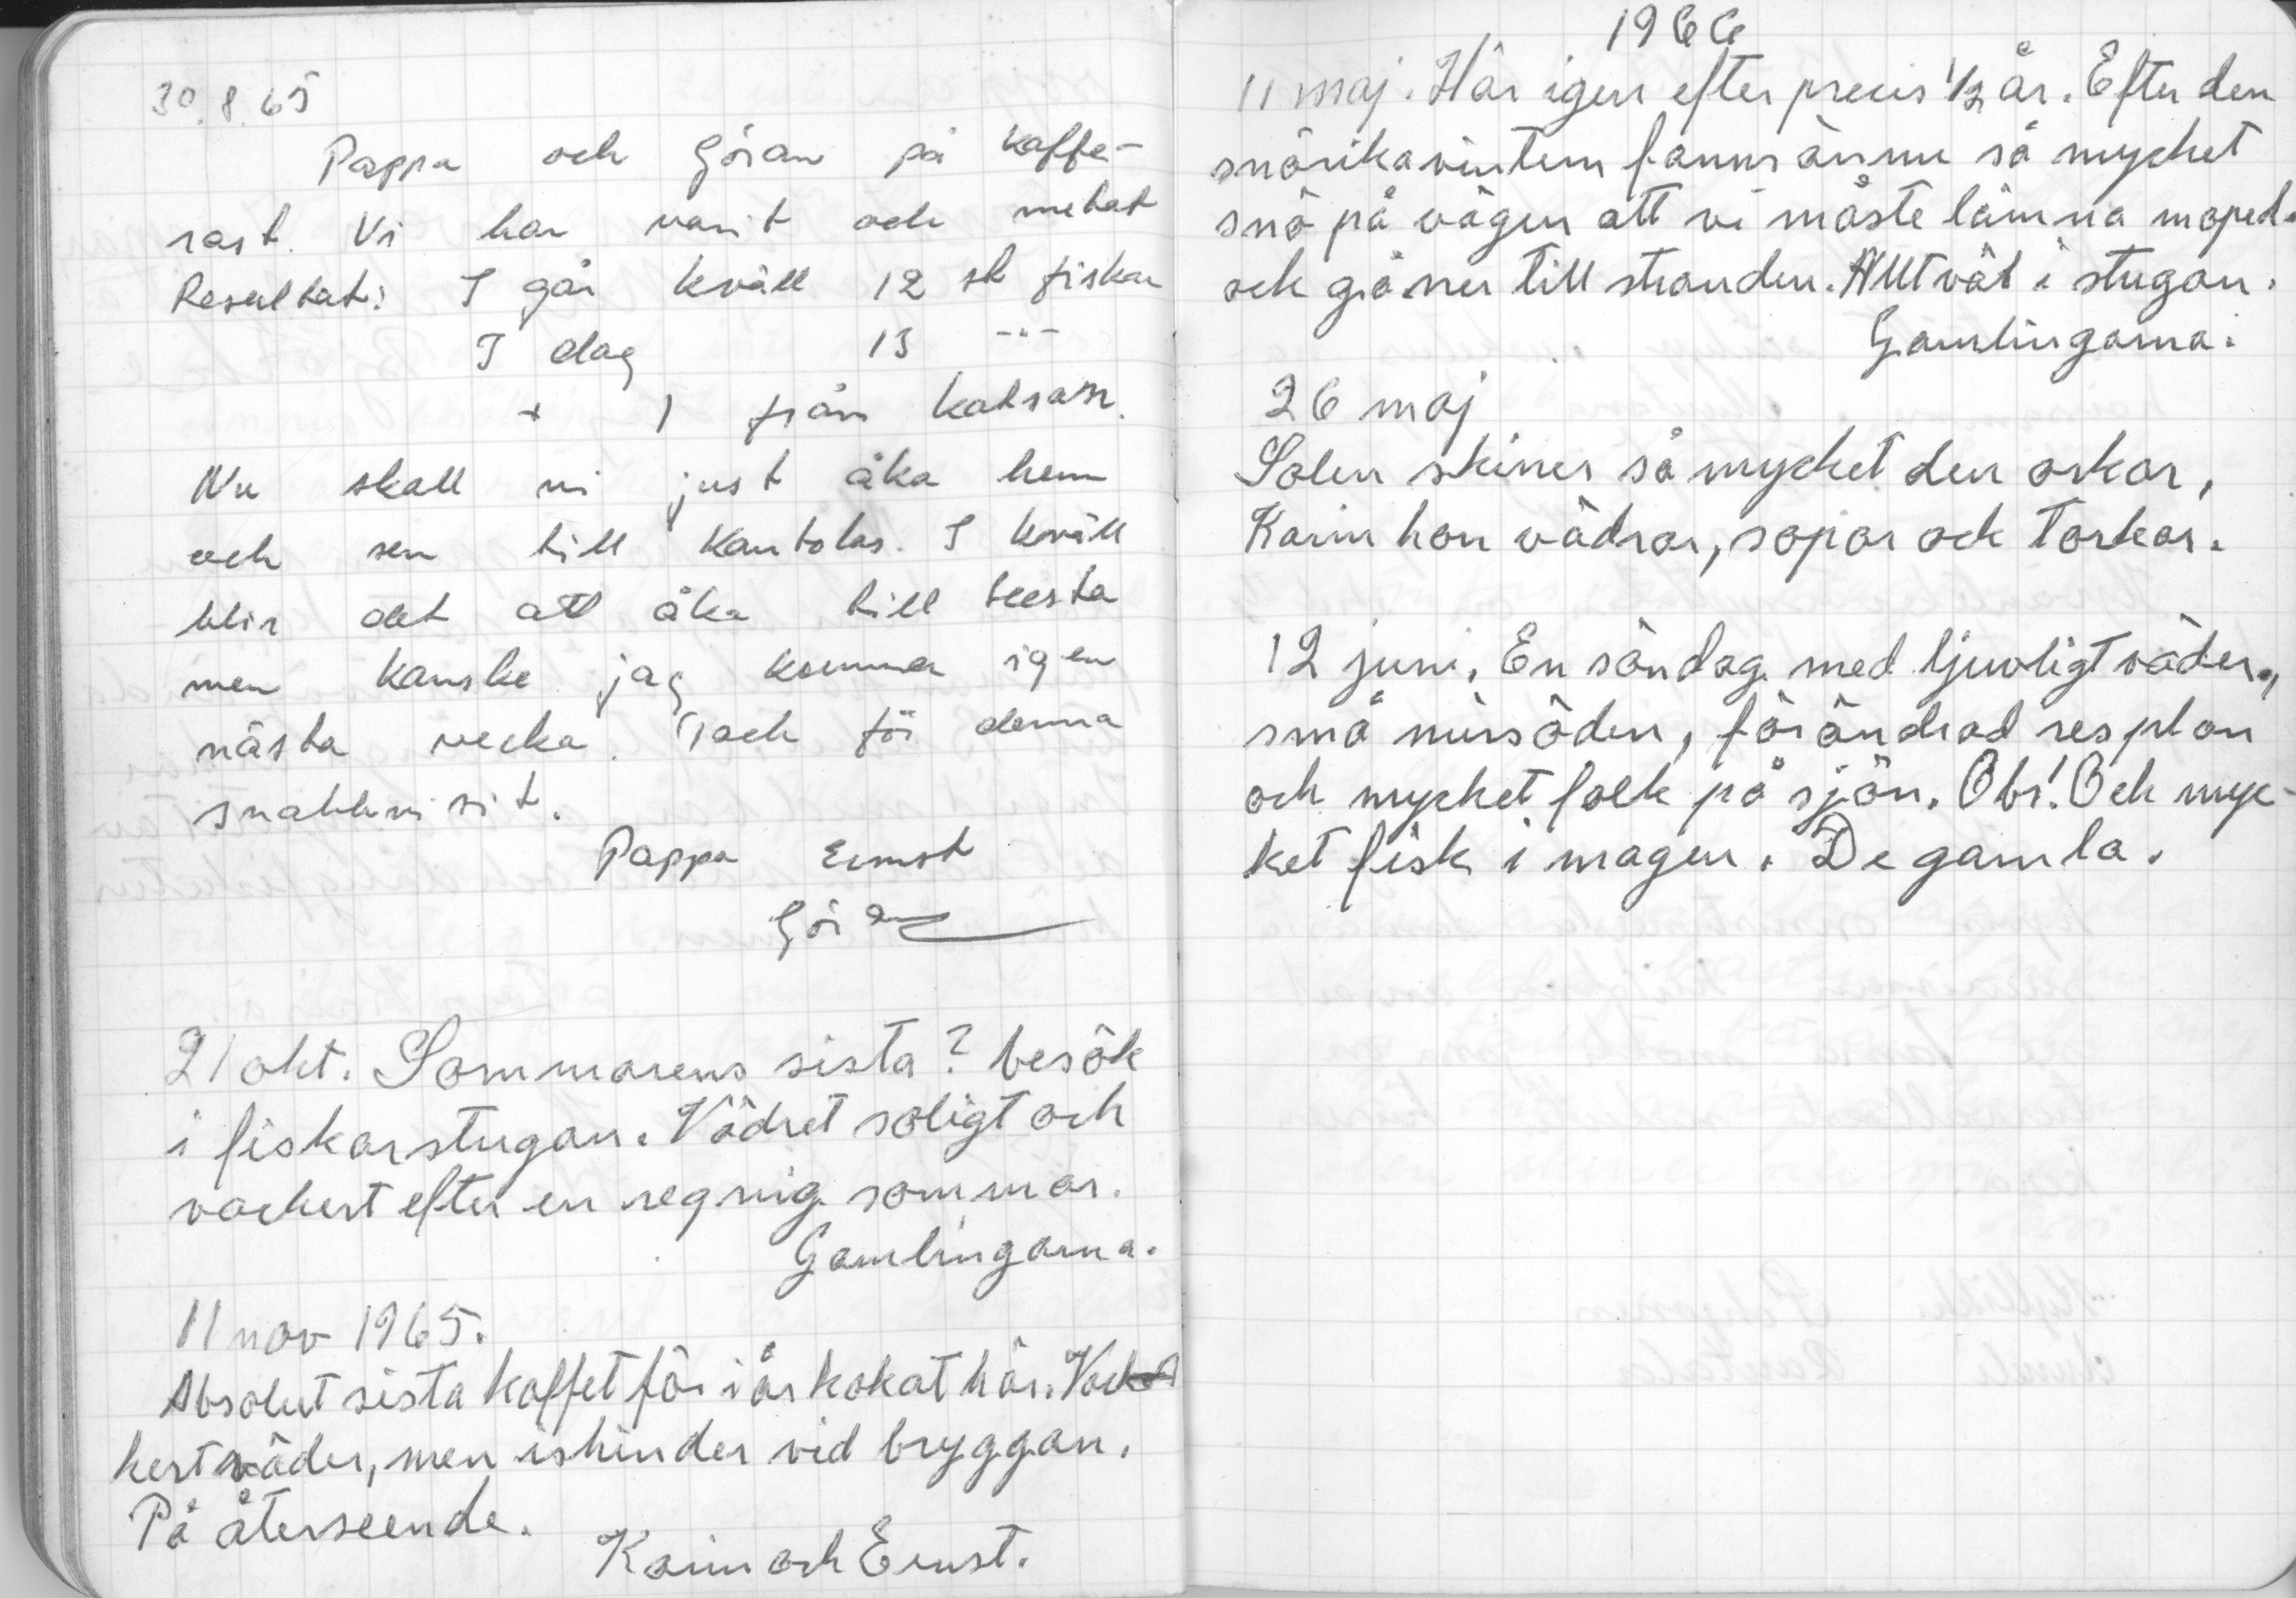 30.8.65
Pappa och Göran på kaffe-
rast. Vi har varit och metat
Resultat: I går kväll 12 st fiskar
I dag 13 -"-
+ 1 från katsan.
Nu skall vi just åka hem
och sen till Kantolas. I kväll
blir det att åka till Seesta
men kanske jag kommer igen
nästa vecka. Tack för denna
snabbvisit.
Pappa Ernst
Göran
21 okt. Sommarens sista? besök
i fiskarstugan. Vädret soligt och
vackert efter en regnig sommar.
Gamlingarna.
11 nov 1965.
Absolut sista kaffet för i år kokat här. Vac-
kert väder, men ishinder vid bryggan.
På återseende.
Karin och Ernst.
1966
11 maj. Här igen efter precis 1/2 år. Efter den
snörika vintern fanns ännu så mycket
snö på vägen att vi måste lämna moped.
och gå ner till stranden. Allt våt i stugan.
Gamlingarna.
26 maj
Solen skiner så mycket den orkar,
Karin hon vädrar, sopar och torkar.
12 juni. En söndag med ljuvligt väder,
små missöden, förändrad resplan
och mycket folk på sjön. Obs! Och myc-
ket fisk i magen. De gamla.